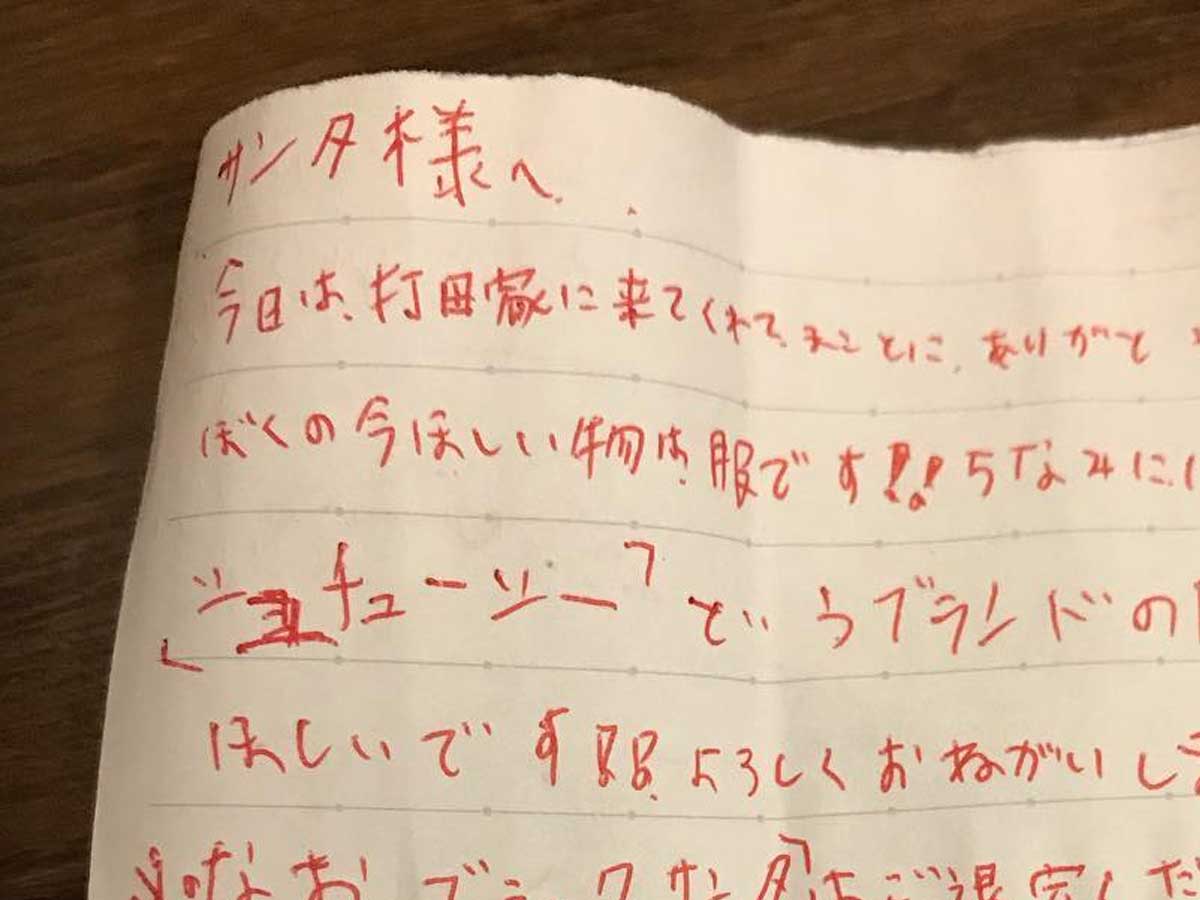 サンタ様へ
今日は、打田家に来てくれて、まことに、ありがと
ぼくの今ほしい物は、服です!! ちなみに、
「ジュチュージー」というブランドの
ほしいです!!! よろしくおねがいしま
※なお、ブラックサンタはご退室くだ